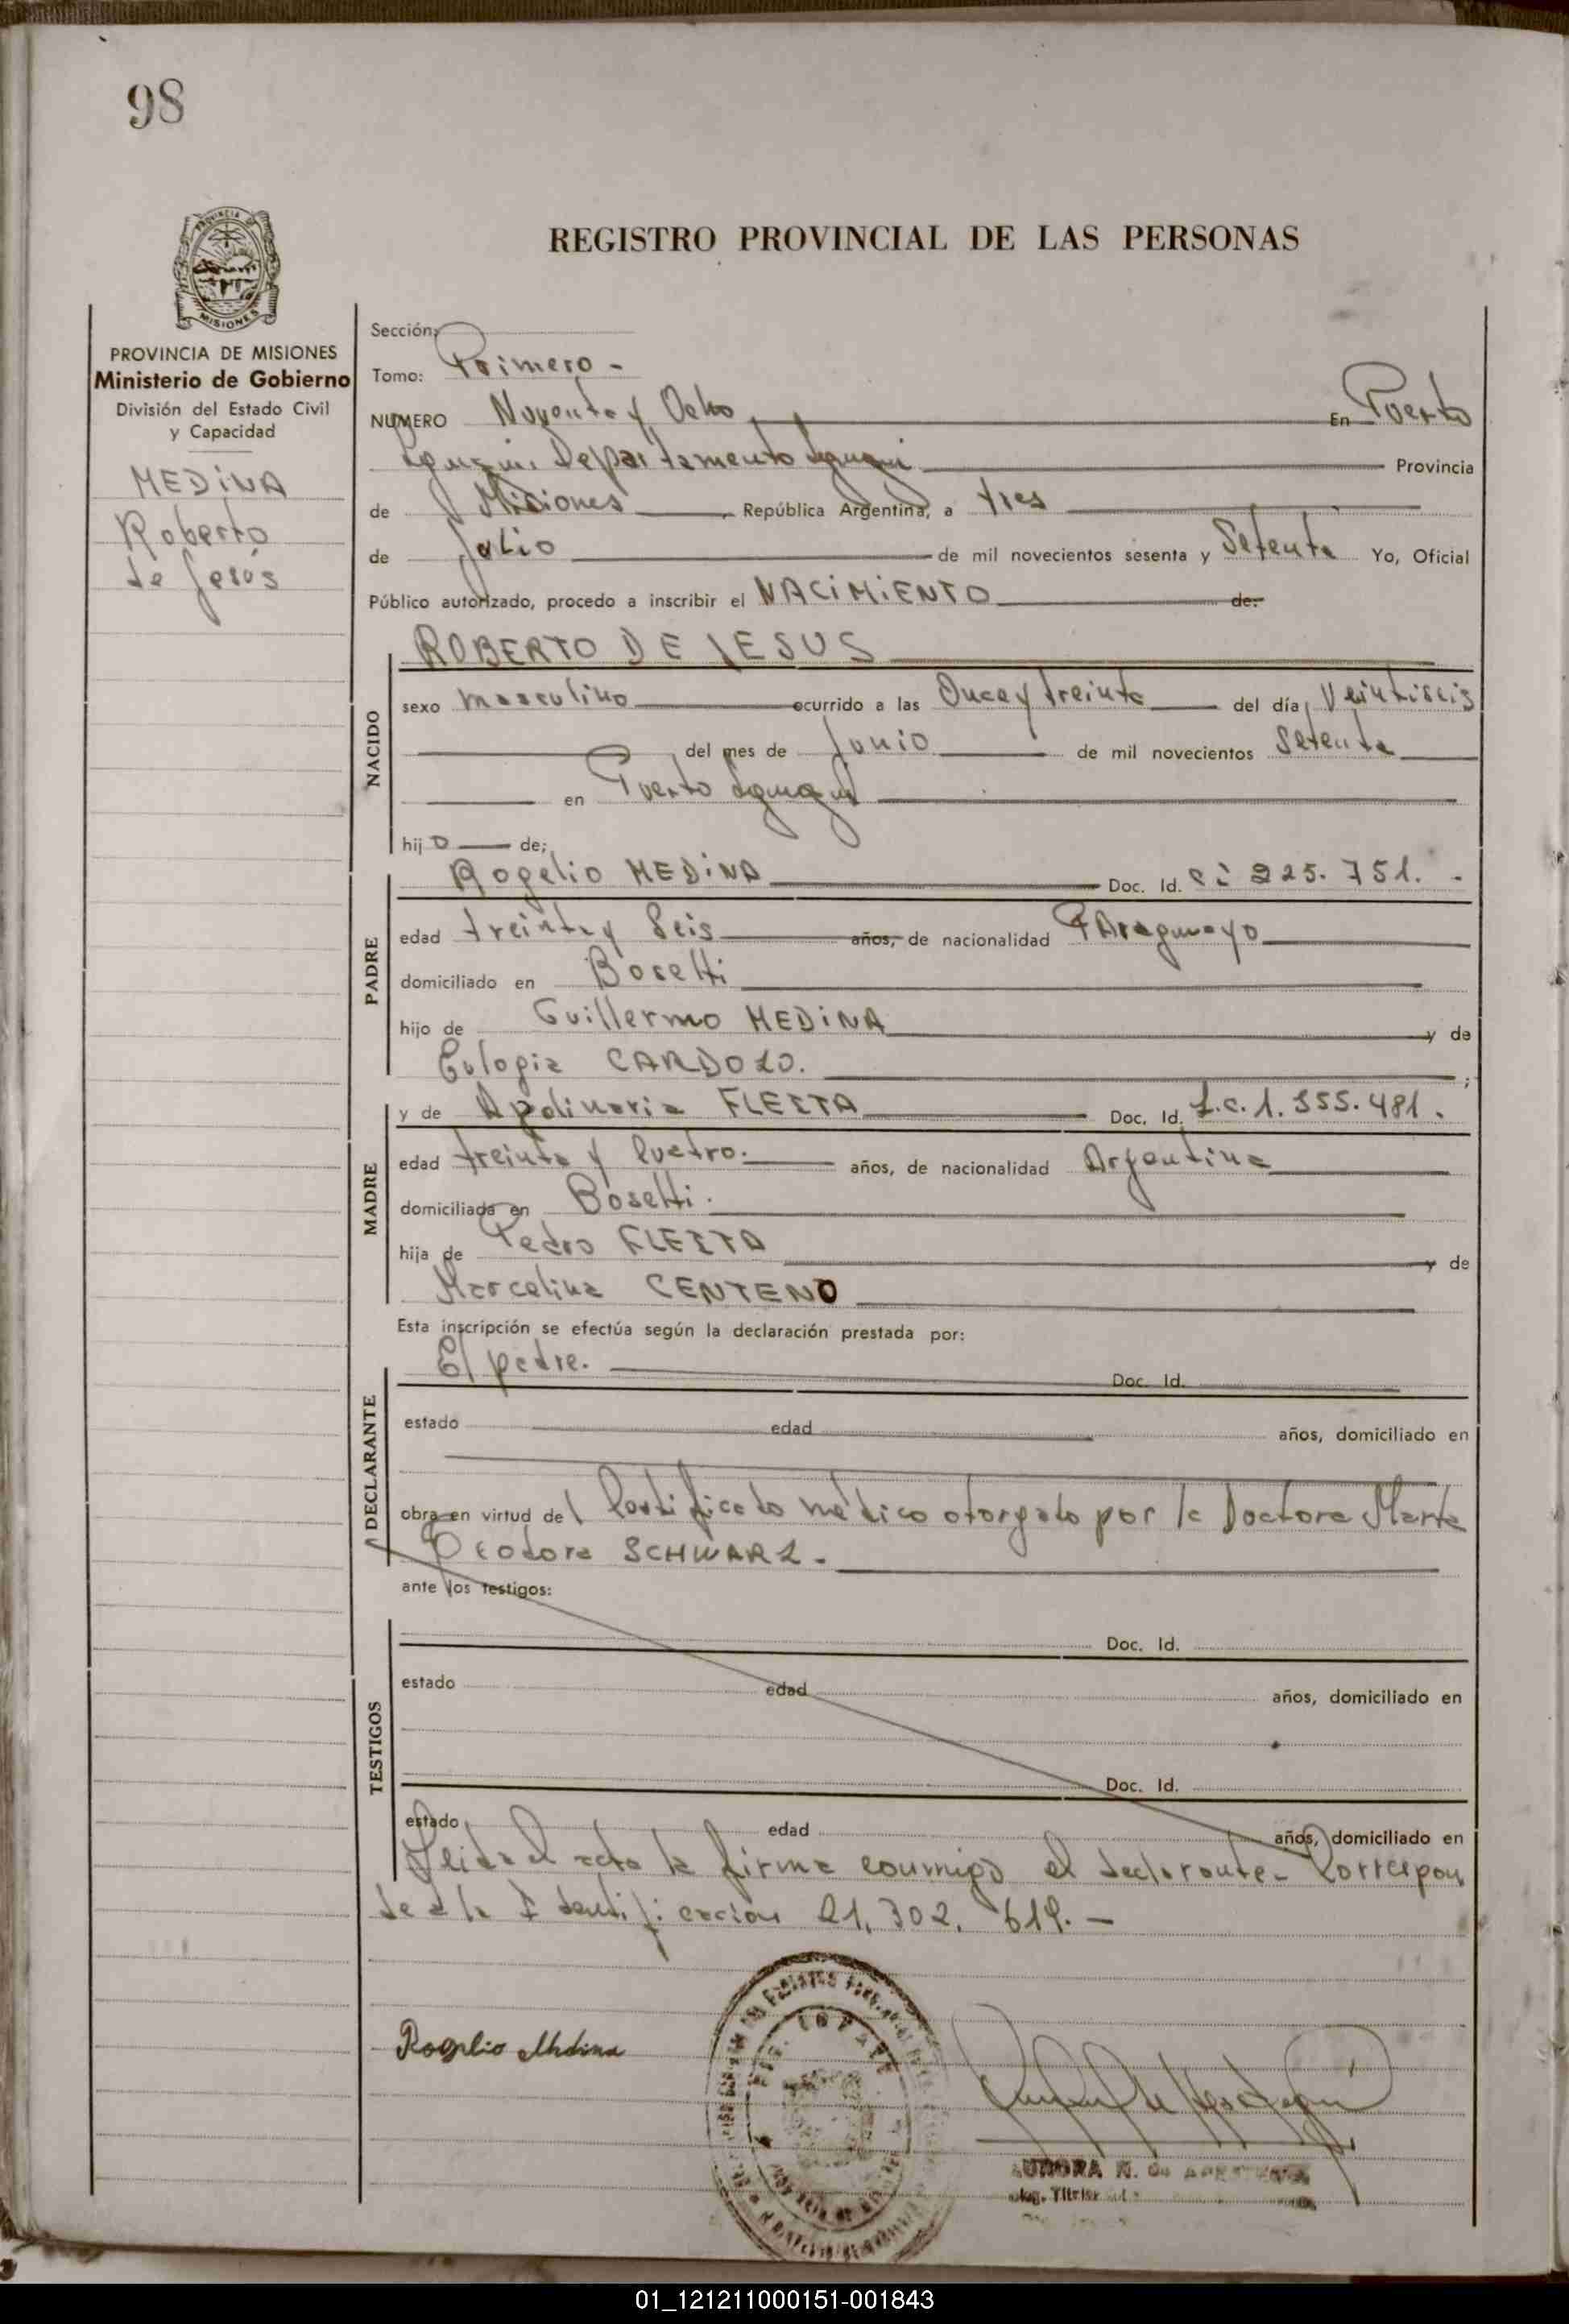 98
REGISTRO PROVINCIAL DE LAS PERSONAS
PROVINCIA DE MISIONES
Ministerio de Gobierno
División del Estado Civil
y Capacidad
MEDINA
Roberto
de Jesús
Sección:
Tomo: Primero -
NUMERO Noventa y Ocho En Puerto
Iguazú, Departamento Iguazú Provincia
de Misiones, República Argentina, a tres
de Julio de mil novecientos sesenta y Setenta Yo, Oficial
Público autorizado, procedo a inscribir el NACIMIENTO de:
ROBERTO DE JESUS
NACIDO
sexo masculino ocurrido a las Once y treinta del día Veintiseis
del mes de Junio de mil novecientos Setenta
en Puerto Iguazú
hijo de;
PADRE
Rogelio MEDINA Doc. Id. ci 225.751. -
edad treinta y Seis años, de nacionalidad PAraguayo
domiciliado en Bosetti
hijo de Guillermo MEDINA y de
Eulogia CARDOZO. ;
MADRE
y de Apolinaria FLEITA Doc. Id. L.c. 1.355.481.
edad treinta y Cuatro. años, de nacionalidad Argentina
domiciliada en Bosetti.
hija de Pedro FLEITA y de
Marcelina CENTENO
Esta inscripción se efectúa según la declaración prestada por:
DECLARANTE
El padre. Doc. Id.
estado edad años, domiciliado en
obra en virtud del Certificado médico otorgado por la Doctora Marta
Teodora SCHWARZ -
ante los testigos:
TESTIGOS
Doc. Id.
estado edad años, domiciliado en
Doc. Id.
estado edad años, domiciliado en
Leida el acta la firma conmigo el declarante - Correspon
de a la Identificación 21.302.619. -
Rogelio Medina
AURORA N. de
01_121211000151-001843